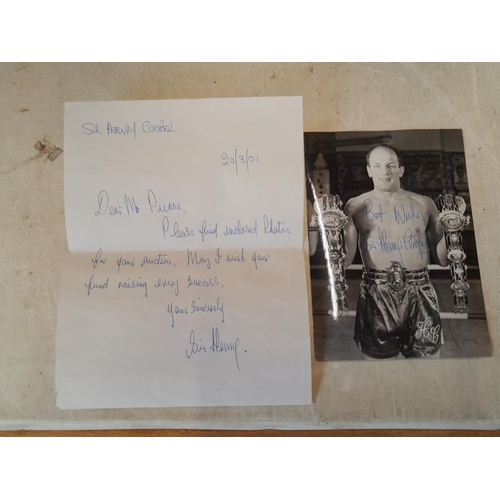 Sir Henry Cooper
20/3/01.
Dear Mr Pierse,
Please find enclosed Photos
for your auction. May I wish your
fund raising every success.
Yours Sincerely
Sir Henry.
Best Wishes
Sir Henry Cooper
HC